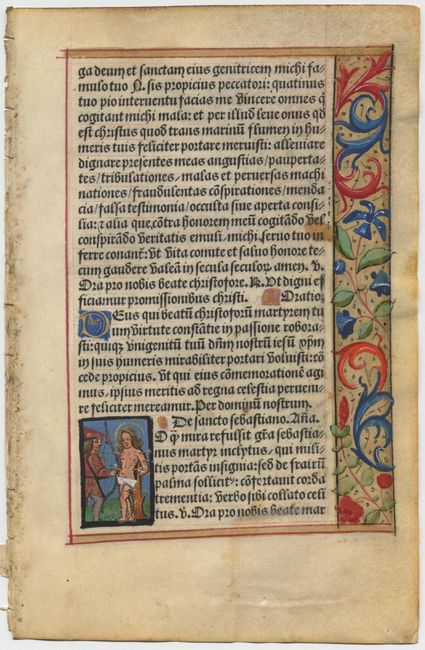 ga deum et sanctam eius genitricem michi fa-
mulo tuo N. sis propicius peccatori: quatinus
tuo pio interuentu facias me vincere omnes q̄
cogitant michi mala: et per illud leue onus qd̄
est christus quod trans marinū flumen in hu-
meris tuis feliciter portare meruisti: alleuiare
dignare presentes meas angustias/ pauperta-
tes/ tribulationes/ malas et peruersas machi
nationes/ fraudulentas cōspirationes/ menda
cia/ falsa testimonia/ occulta siue aperta consi-
lia: ⁊ alia que/ cōtra honorem meū cogitādo vel
conspirādo veritatis emuli/ michi seruo tuo in
ferre conant᷑: vt vita comite et saluo honore te-
cum gaudere valeā in secula seculoꝝ amen. v̄.
Ora pro nobis beate christofore. R̄. Vt digni ef
ficiamur promissionibus christi. Oratio.
Deus qui beatū christoforū martyrem tu
um virtute constātie in passione robora-
sti: quiqȝ vnigenitū tuū dn̄m nostrū iesū xp̄m
in suis humeris mirabiliter portari voluisti: cō
cede propicius. vt qui eius cōmemorationē agi
mus/ ipsius meritis ad regna celestia perueni-
re feliciter mereamur. Per dominū nostrum.
De sancto sebastiano. Añā.
O q̄ mira refulsit gr̄a sebastia-
nus martyr inclytus/ qui mili-
tis portās insignia: sed de fratrū
palma sollicit᷒: cōfortauit corda
trementia: verbo sibi collato celi
tus. v̄. Ora pro nobis beate mar